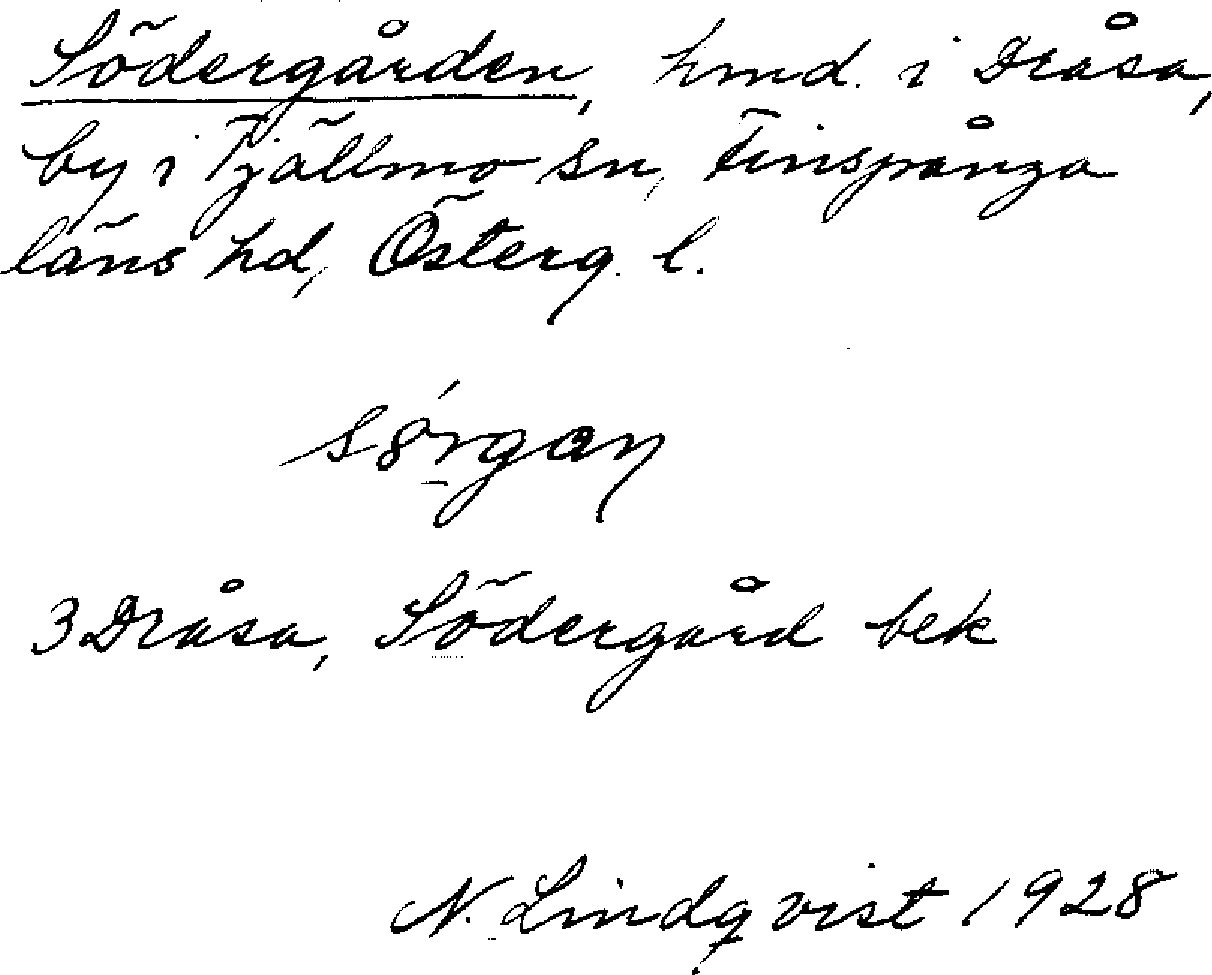 Södergården, hmd. i Dråsa,
by i Tjällmo sn, Finspånga
läns hd, Österg. l.
3 Dråsa, Södergård bek
N. Lindqvist 1928